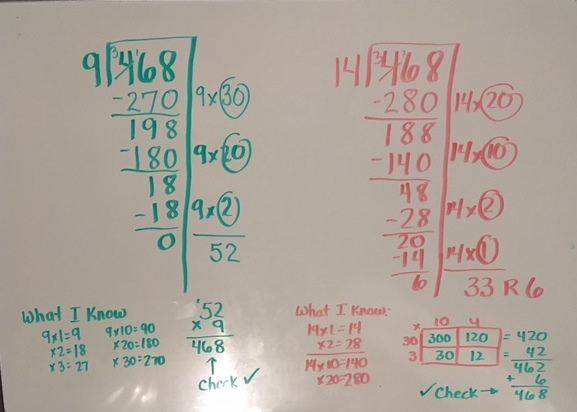 9 468
-270 9×30
198
-180 9×20
18
-18 9×2
0 52
14 468
-280 14×20
188
-140 14×10
48
-28 14×2
20
-14 14×1
6 33 R 6
What I Know
9×1=9 9×10=90
×2=18 ×20=180
×3=27 ×30=270
52
× 9
468
↑
Check ✓
What I Know:
14×1=14
×2=28
14×10=140
×20=280
× 10 4
30 300 120 = 420
3 30 12 = 42
462
+ 6
468
✓Check →